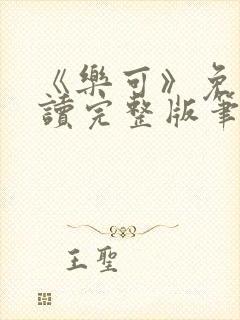 《樂可》免
讀完整版筆
王聖